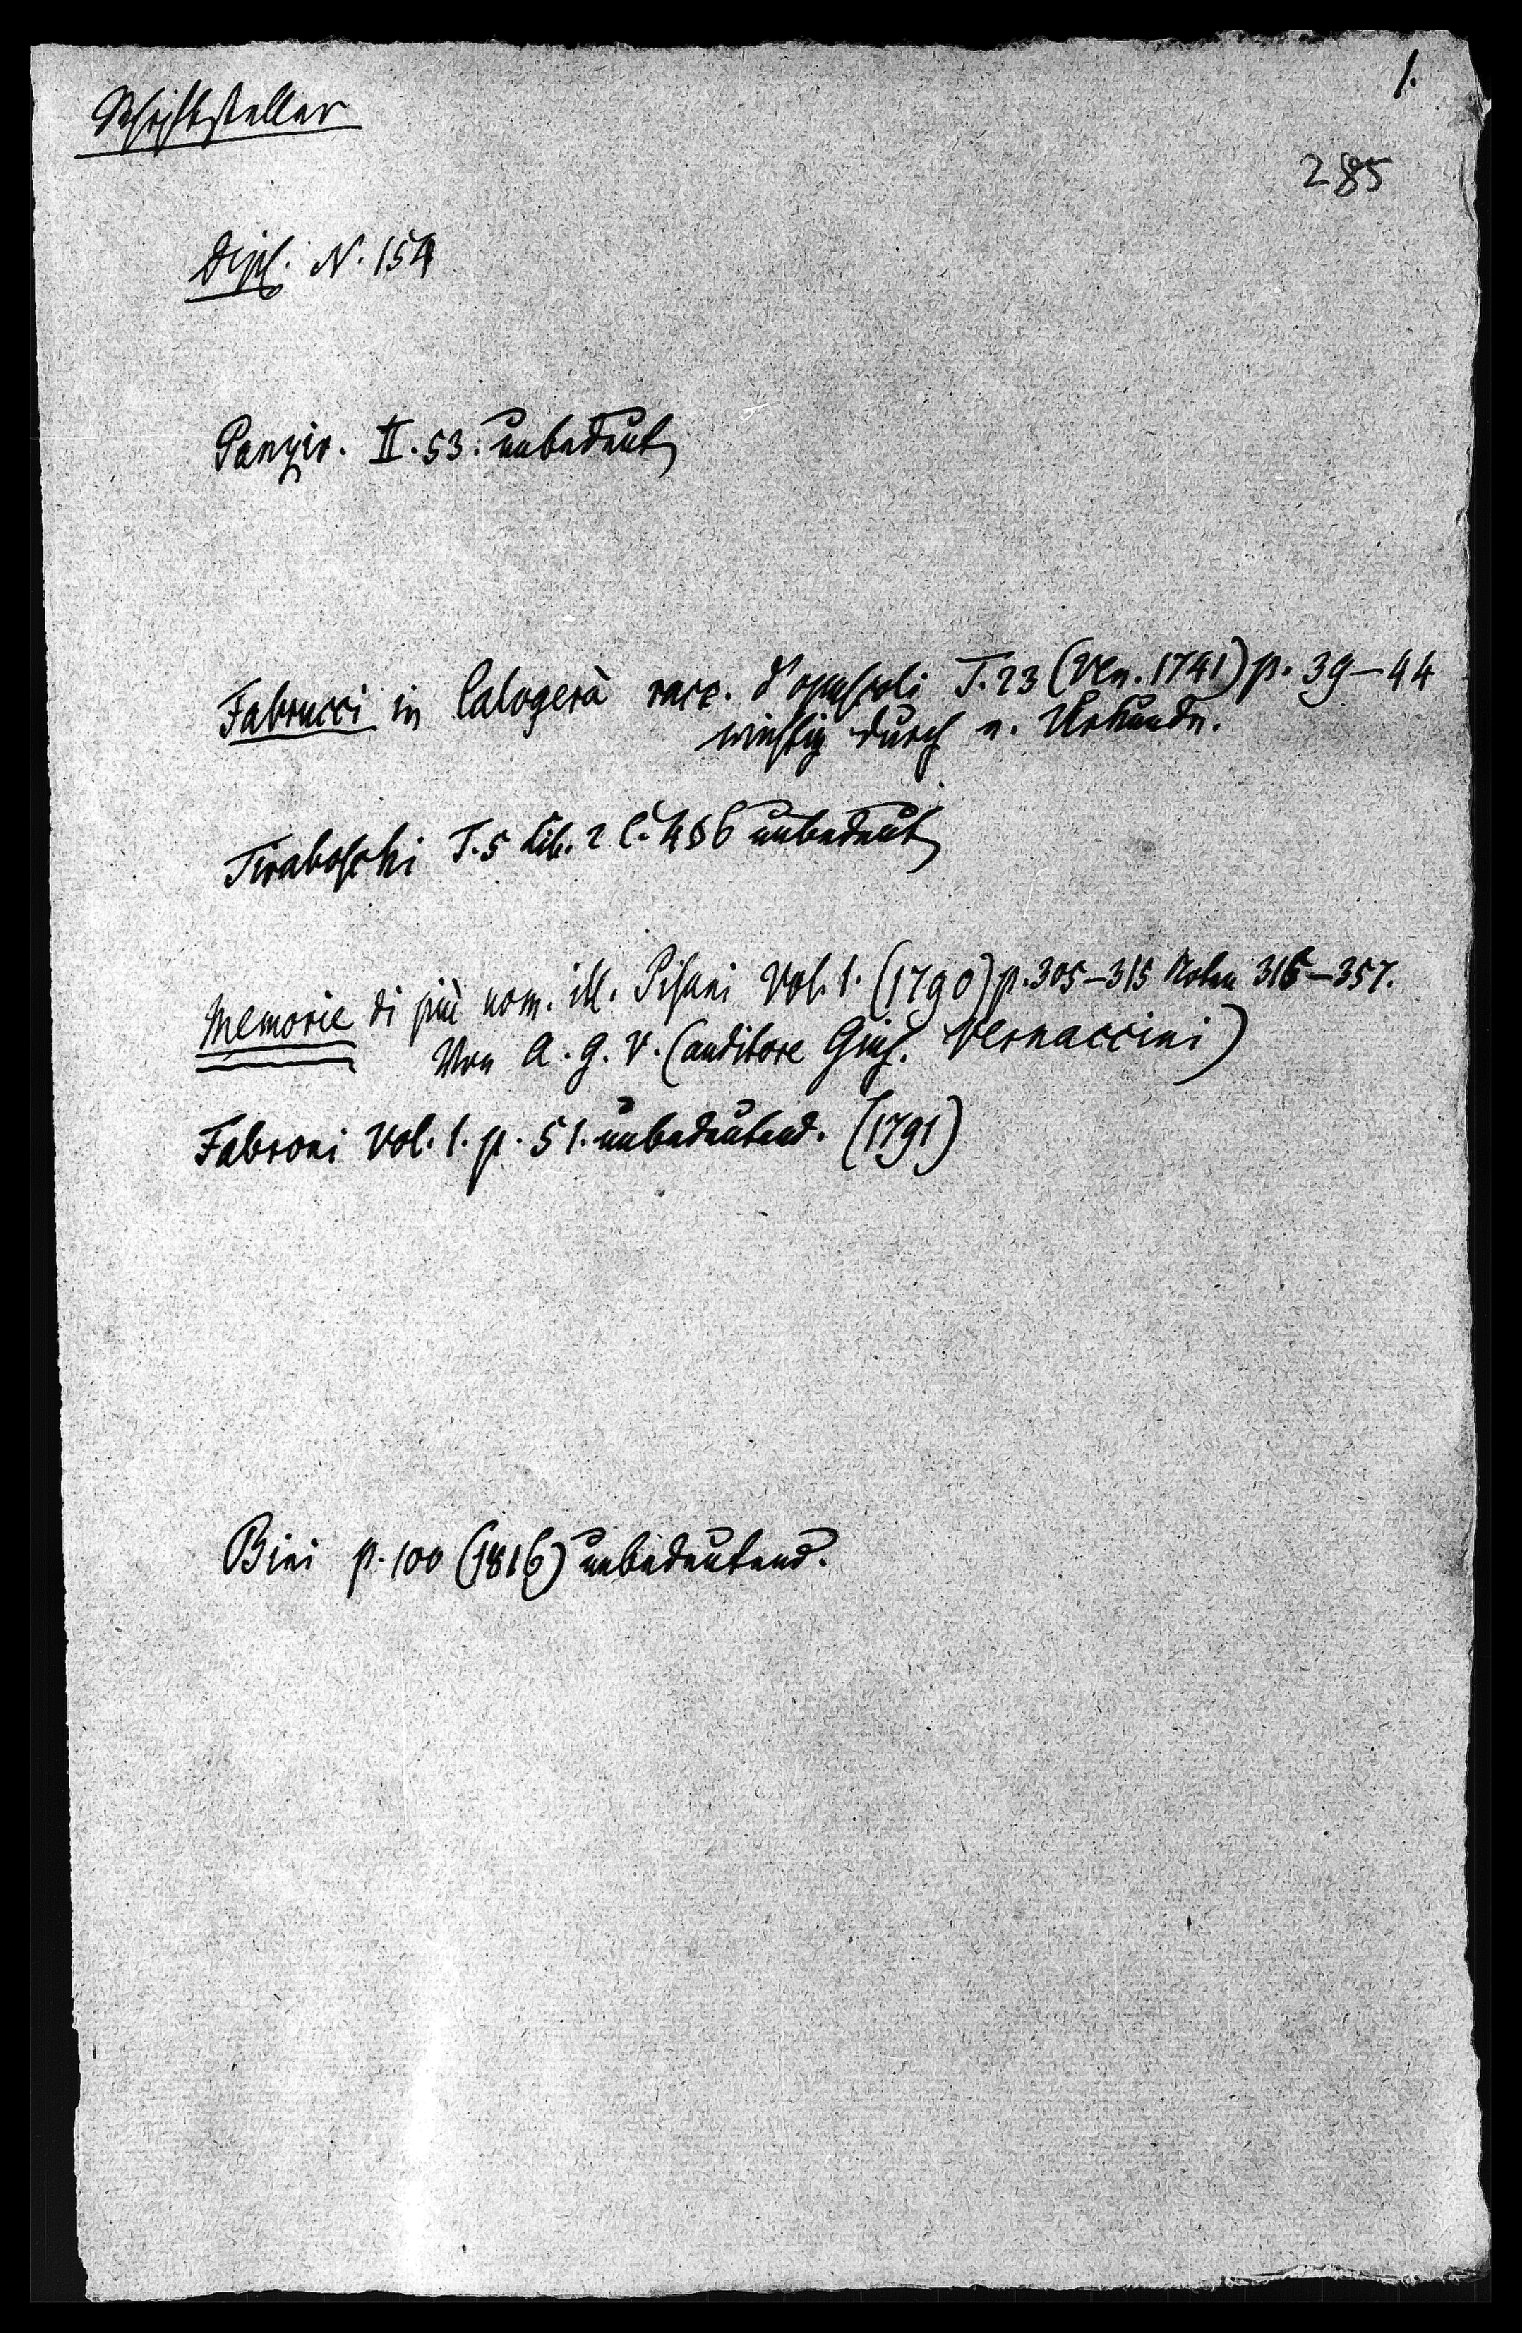 1.
Schriftsteller
285
Dipl. N. 154
Panzir. II. 53. unbedeut
Fabrucci in Calogerà racc. d'opuscoli T. 23 (Ven. 1741) p. 39–44
wichtig durch n. Urkunden.
Tiraboschi T. 5 Lib. 2 C. 4 § 6 unbedeut
Memorie di più uom. ill. Pisani Vol. 1. (1790) p. 305–315 Noten 316–357.
Von A. G. V. (auditore Gius. Vernaccini)
Fabroni Vol. 1. p. 51. unbedeutend. (1791)
Bini p. 100 (1816) unbedeutend.